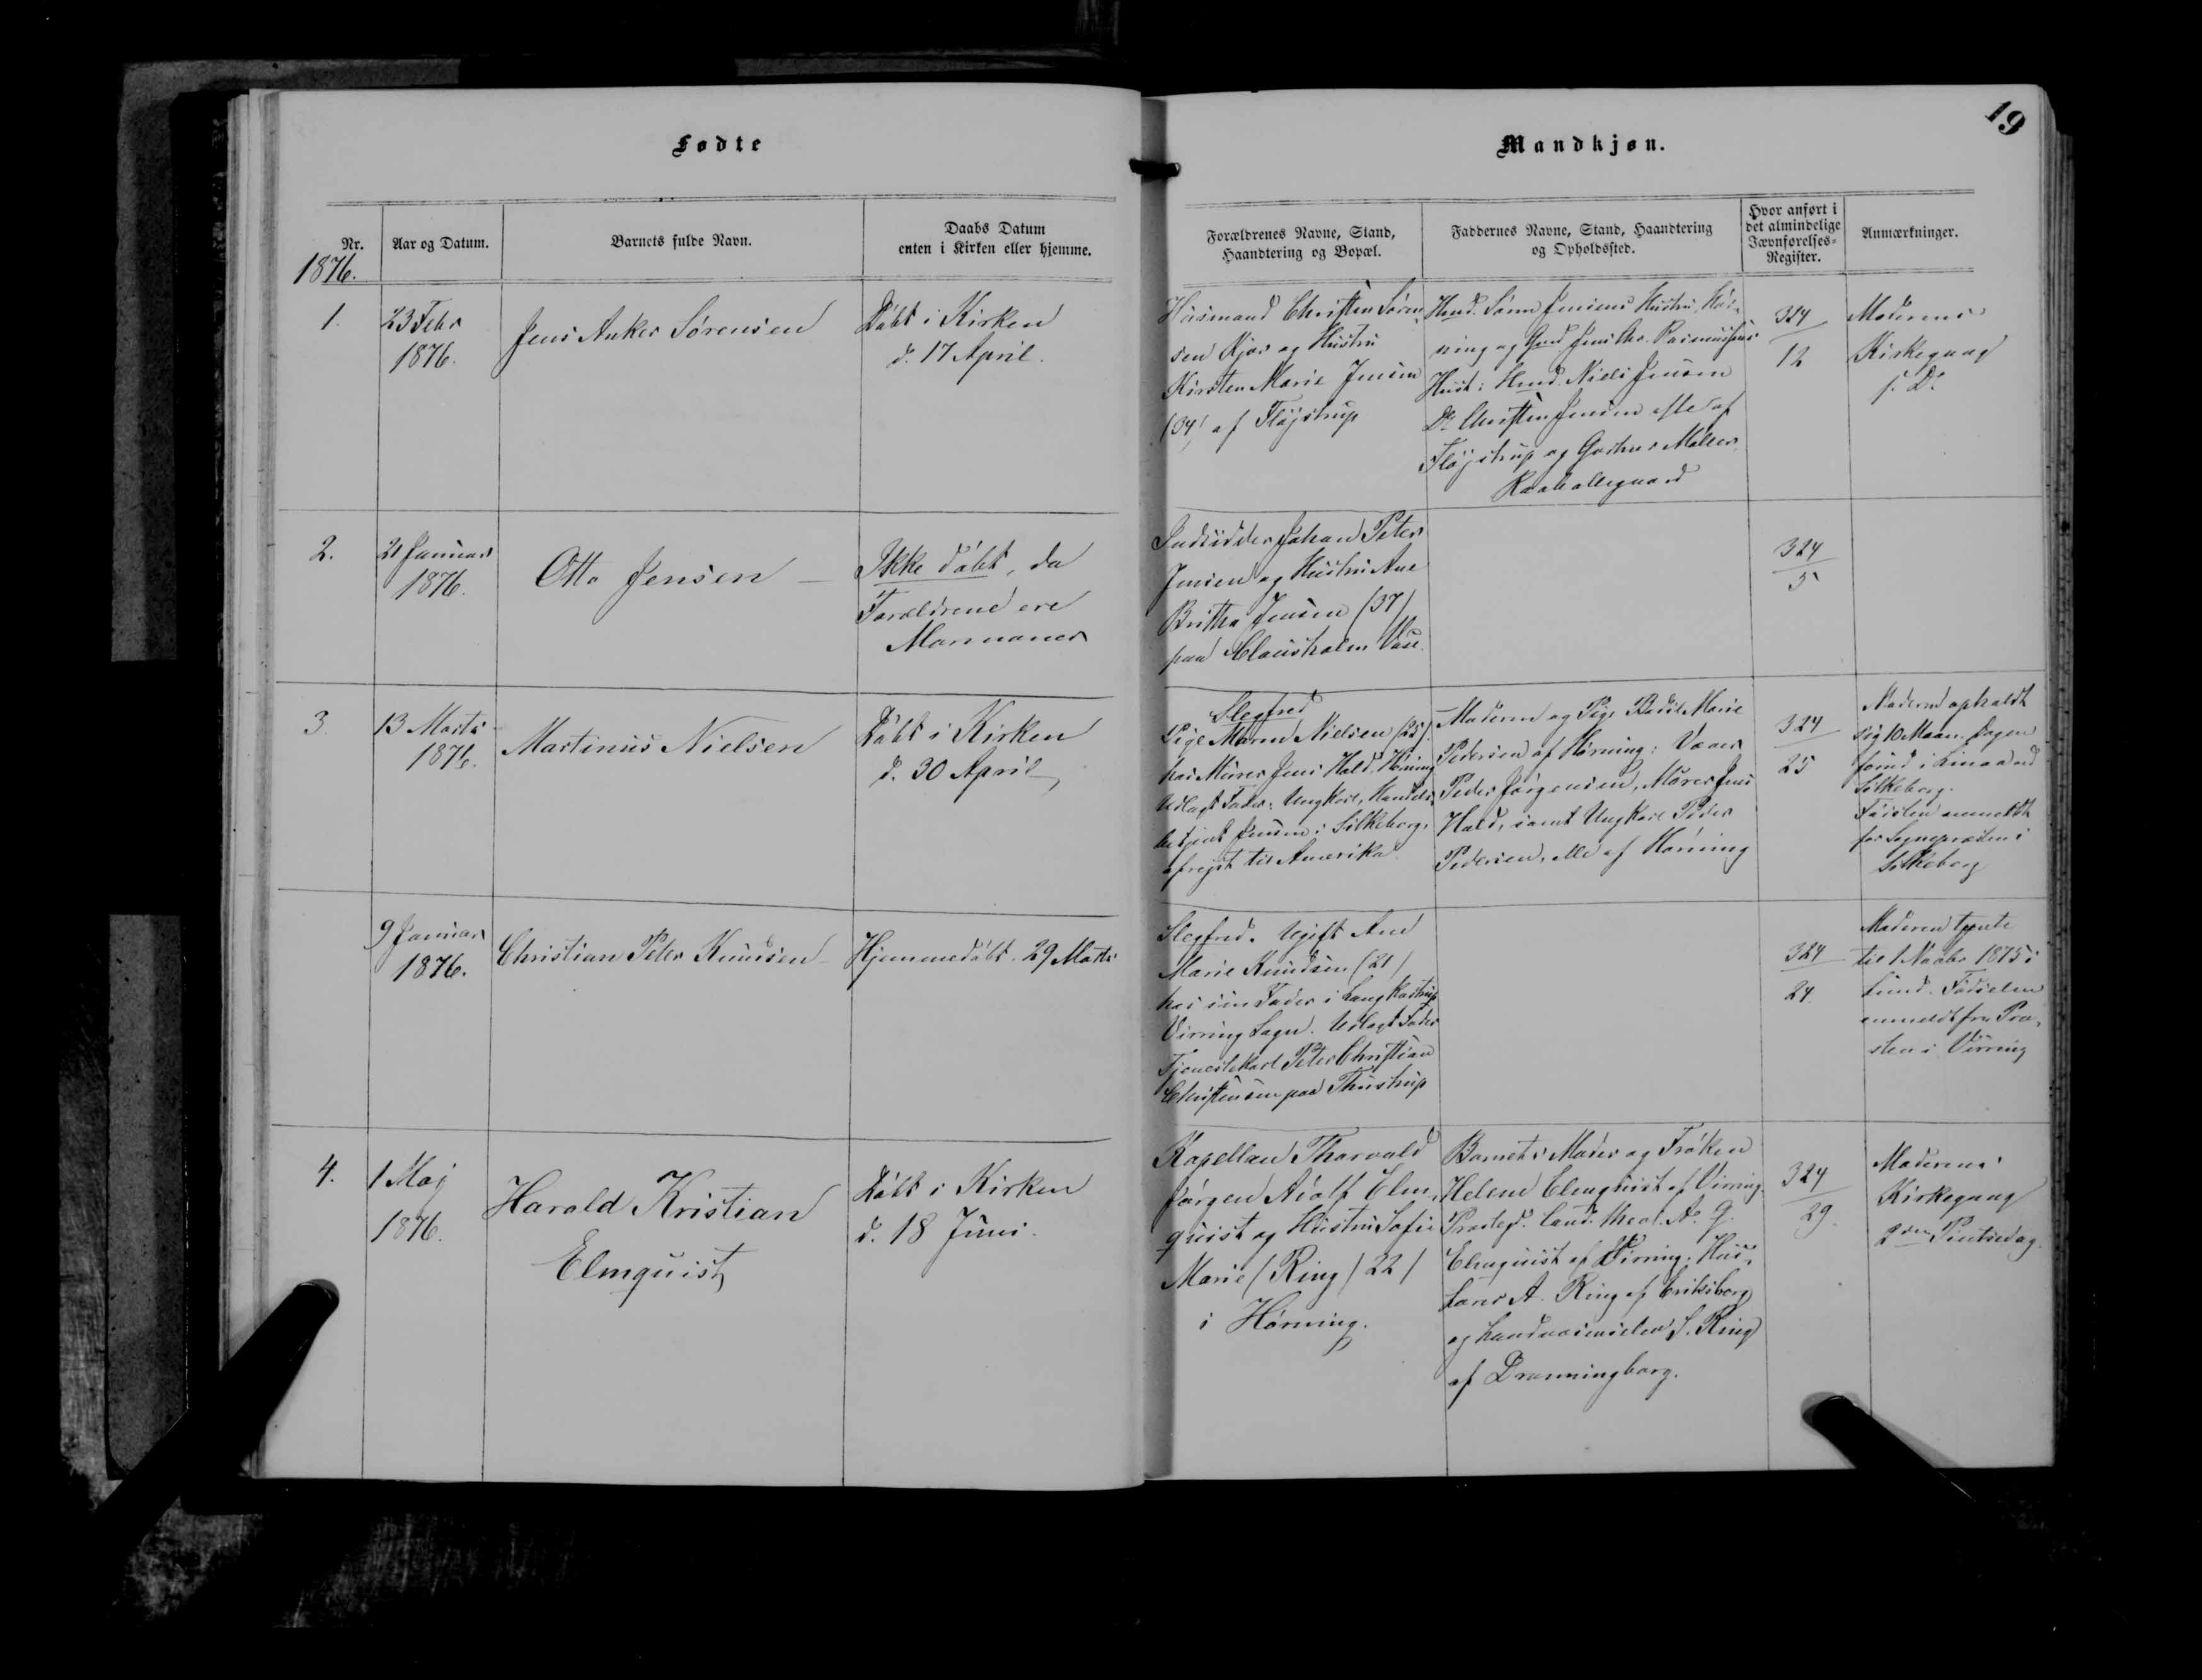 Fødte
Mandkjøn.
19
Nr.
Aar og Datum.
Barnets fulde Navn.
Daabs Datum
enten i Kirken eller hjemme.
Forældrenes Navne, Stand,
Haandtering og Bopæl.
Faddernes Navne, Stand, Haandtering
og Opholdssted.
Hvor anført i
det almindelige
Jævnførelses-
Register.
Anmærkninger.
1876.
1.
23 Febr
1876.
Jens Anker Sørensen
Døbt i Kirken
d. 17 April.
Huusmand Christen Søren-
sen Kjær og Hustru
Kirsten Marie Jensen
(34) af Fløjstrup
Hmd. Søren Jensens Hustru, Hør-
ning og Gmd Jens Chr. Rasmussens
Hust: Hmd. Niels Jensen
Do Christen Jensen alle af
Fløjstrup og Gartner Møller
324
12
Moderens
Kirkegang
s. D.
2.
21 Januar
1876.
Otto Jensen
Ikke døbt, da
Forældrene ere
Mormoner
Indsidder Johan Peter
Jensen og Hustru Ane
Birtha Jensen (37)
paa Clausholm Vase.
324
5
3.
13 Marts
1876.
Martinus Nielsen
Døbt i Kirken
d. 30 April
Slegfred
Pige Maren Nielsen (25)
hos Murer Jens Hald, Hørning
Udlagt Fader: Ungkarl, Handels-
betjent Jensen i Silkeborg,
afrejst til Amerika.
Moderen og Pige Bodil Marie
Pedersen af Hørning: Væver
Peder Jørgensen, Murer Jens
Hald, samt Ungkarl Peder
Pedersen, alle af Hørning
324
25
Moderen opholdt
sig 10 Maan. Dagen
forud i Linaa ved
Silkeborg.
Fødslen anmeldt
for Sognepræsten i
Silkeborg
9 Januar
1876.
Christian Peter Knudsen
Hjemmedøbt. 29 Marts
Slegfred. Ugift Ane
Marie Knudsen (21)
hos sin Fader i Langkastrup
Virring Sogn. Udlagt Fader
Tjenestekarl Peter Christian
Christensen paa Thustrup
324
24.
Moderen tjente
til 1 Novbr 1875 i
Lund. Fødselen
anmeldt fra Præ-
sten i Virring
4.
1 Maj
1876.
Harald Kristian
Elmquist
Døbt i Kirken
d. 18 Juni.
Kapellan Thorvald
Jørgen Adolf Elm-
quist og Hustru Sofie
Marie (Ring) 22)
i Hørning.
Barnets Moder og Frøken
Helene Elmquist af Virring
Præsteg. Cand. theol. A. G.
Elmquist af Virring; Hus-
lærer A. Ring af Eriksborg
og Landvæsenselev S. Ring
af Dronningborg.
324
29.
Moderens
Kirkegang
2den Pintsedag.